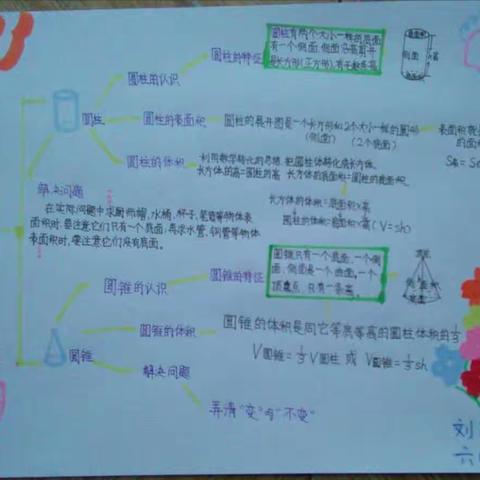 圆柱有两个大小一样的底面
有一个侧面,侧面沿高剪开
是长方形(正方形),有无数条高
底面
侧面
高
圆柱的特征
圆柱的认识
圆柱
圆柱的表面积
圆柱的展开图是一个长方形和2个大小一样的圆形
(侧面)
(2个底面)
表面积就
的面积
S表=S
圆柱的体积
利用数学转化的思想,把圆柱体转化成长方体,
长方体的高=圆柱的高 长方体的底面积=圆柱的底面积.
长方体的体积=底面积×高
圆柱的体积=底面积×高(V=sh)
解决问题
在实际问题中求厨师帽,水桶,杯子,笔筒等物体表
面积时,要注意它们只有一个底面,再求水管,钢管等物体
表面积时,要注意它们没有底面。
圆锥只有一个底面,一个侧
面,侧面是一个曲面,一个
顶点,只有一条高。
顶点
侧面
高
底面
圆锥的特征
圆锥的认识
圆锥的体积
圆锥的体积是同它等底等高的圆柱体积的1/3
V圆锥=1/3V圆柱 或 V圆锥=1/3sh
圆锥
解决问题
弄清“变”与“不变”
刘
六